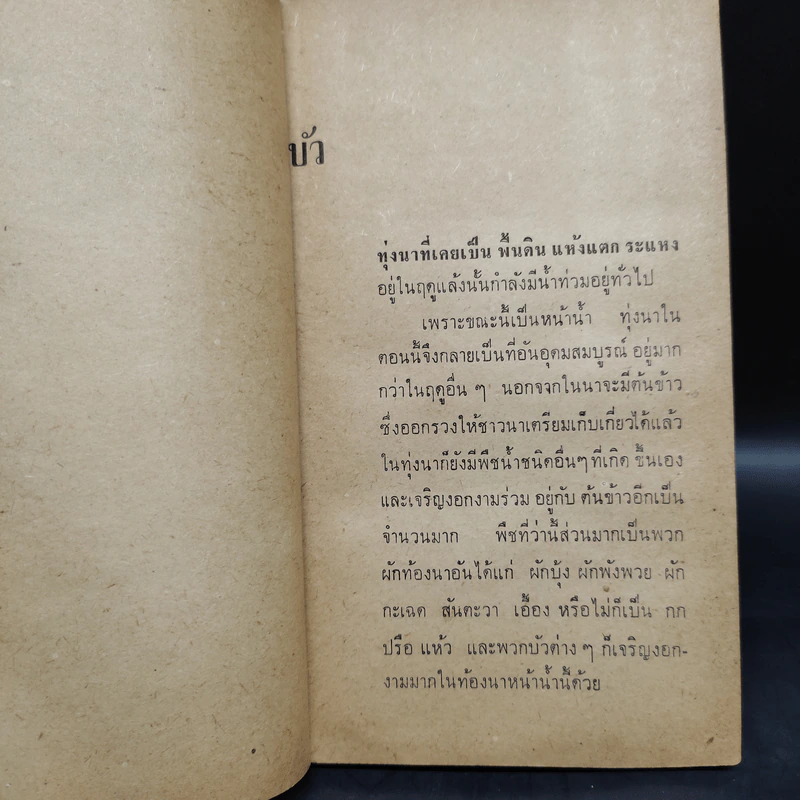 บัว
ทุ่งนาที่เคยเป็น พื้นดิน แห้งแตก ระแหง
อยู่ในฤดูแล้งนั้นกำลังมีน้ำท่วมอยู่ทั่วไป
เพราะขณะนี้เป็นหน้าน้ำ ทุ่งนาใน
ตอนนี้จึงกลายเป็นที่อันอุดมสมบูรณ์ อยู่มาก
กว่าในฤดูอื่น ๆ นอกจจกในนาจะมีต้นข้าว
ซึ่งออกรวงให้ชาวนาเตรียมเก็บเกี่ยวได้แล้ว
ในทุ่งนาก็ยังมีพืชน้ำชนิดอื่นๆที่เกิด ขึ้นเอง
และเจริญงอกงามร่วม อยู่กับ ต้นข้าวอีกเป็น
จำนวนมาก พืชที่ว่านี้ส่วนมากเป็นพวก
ผักท้องนาอันได้แก่ ผักบุ้ง ผักพังพวย ผัก
กะเฉด สันตะวา เอื้อง หรือไม่ก็เป็น กก
ปรือ แห้ว และพวกบัวต่าง ๆ ก็เจริญงอก-
งามมากในท้องนาหน้าน้ำนี้ด้วย